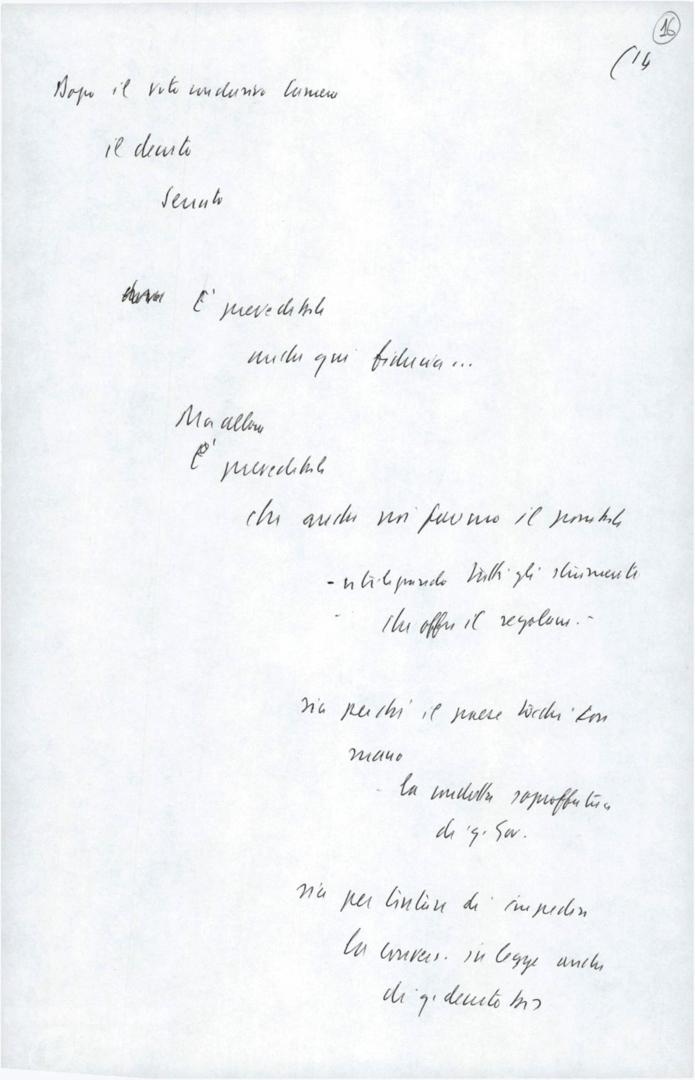 16
(14
Dopo il voto conclusivo Camera
il decreto
Senato
È prevedibile
anche qui fiducia...
Ma allora
È prevedibile
che anche noi faremo il possibile
- utilizzando tutti gli strumenti
che offre il regolam. -
sia perché il paese tocchi con
mano
la condotta sopraffattrice
di q. Gov.
sia per tentare di impedire
la convers. in legge anche
di q. decreto bis